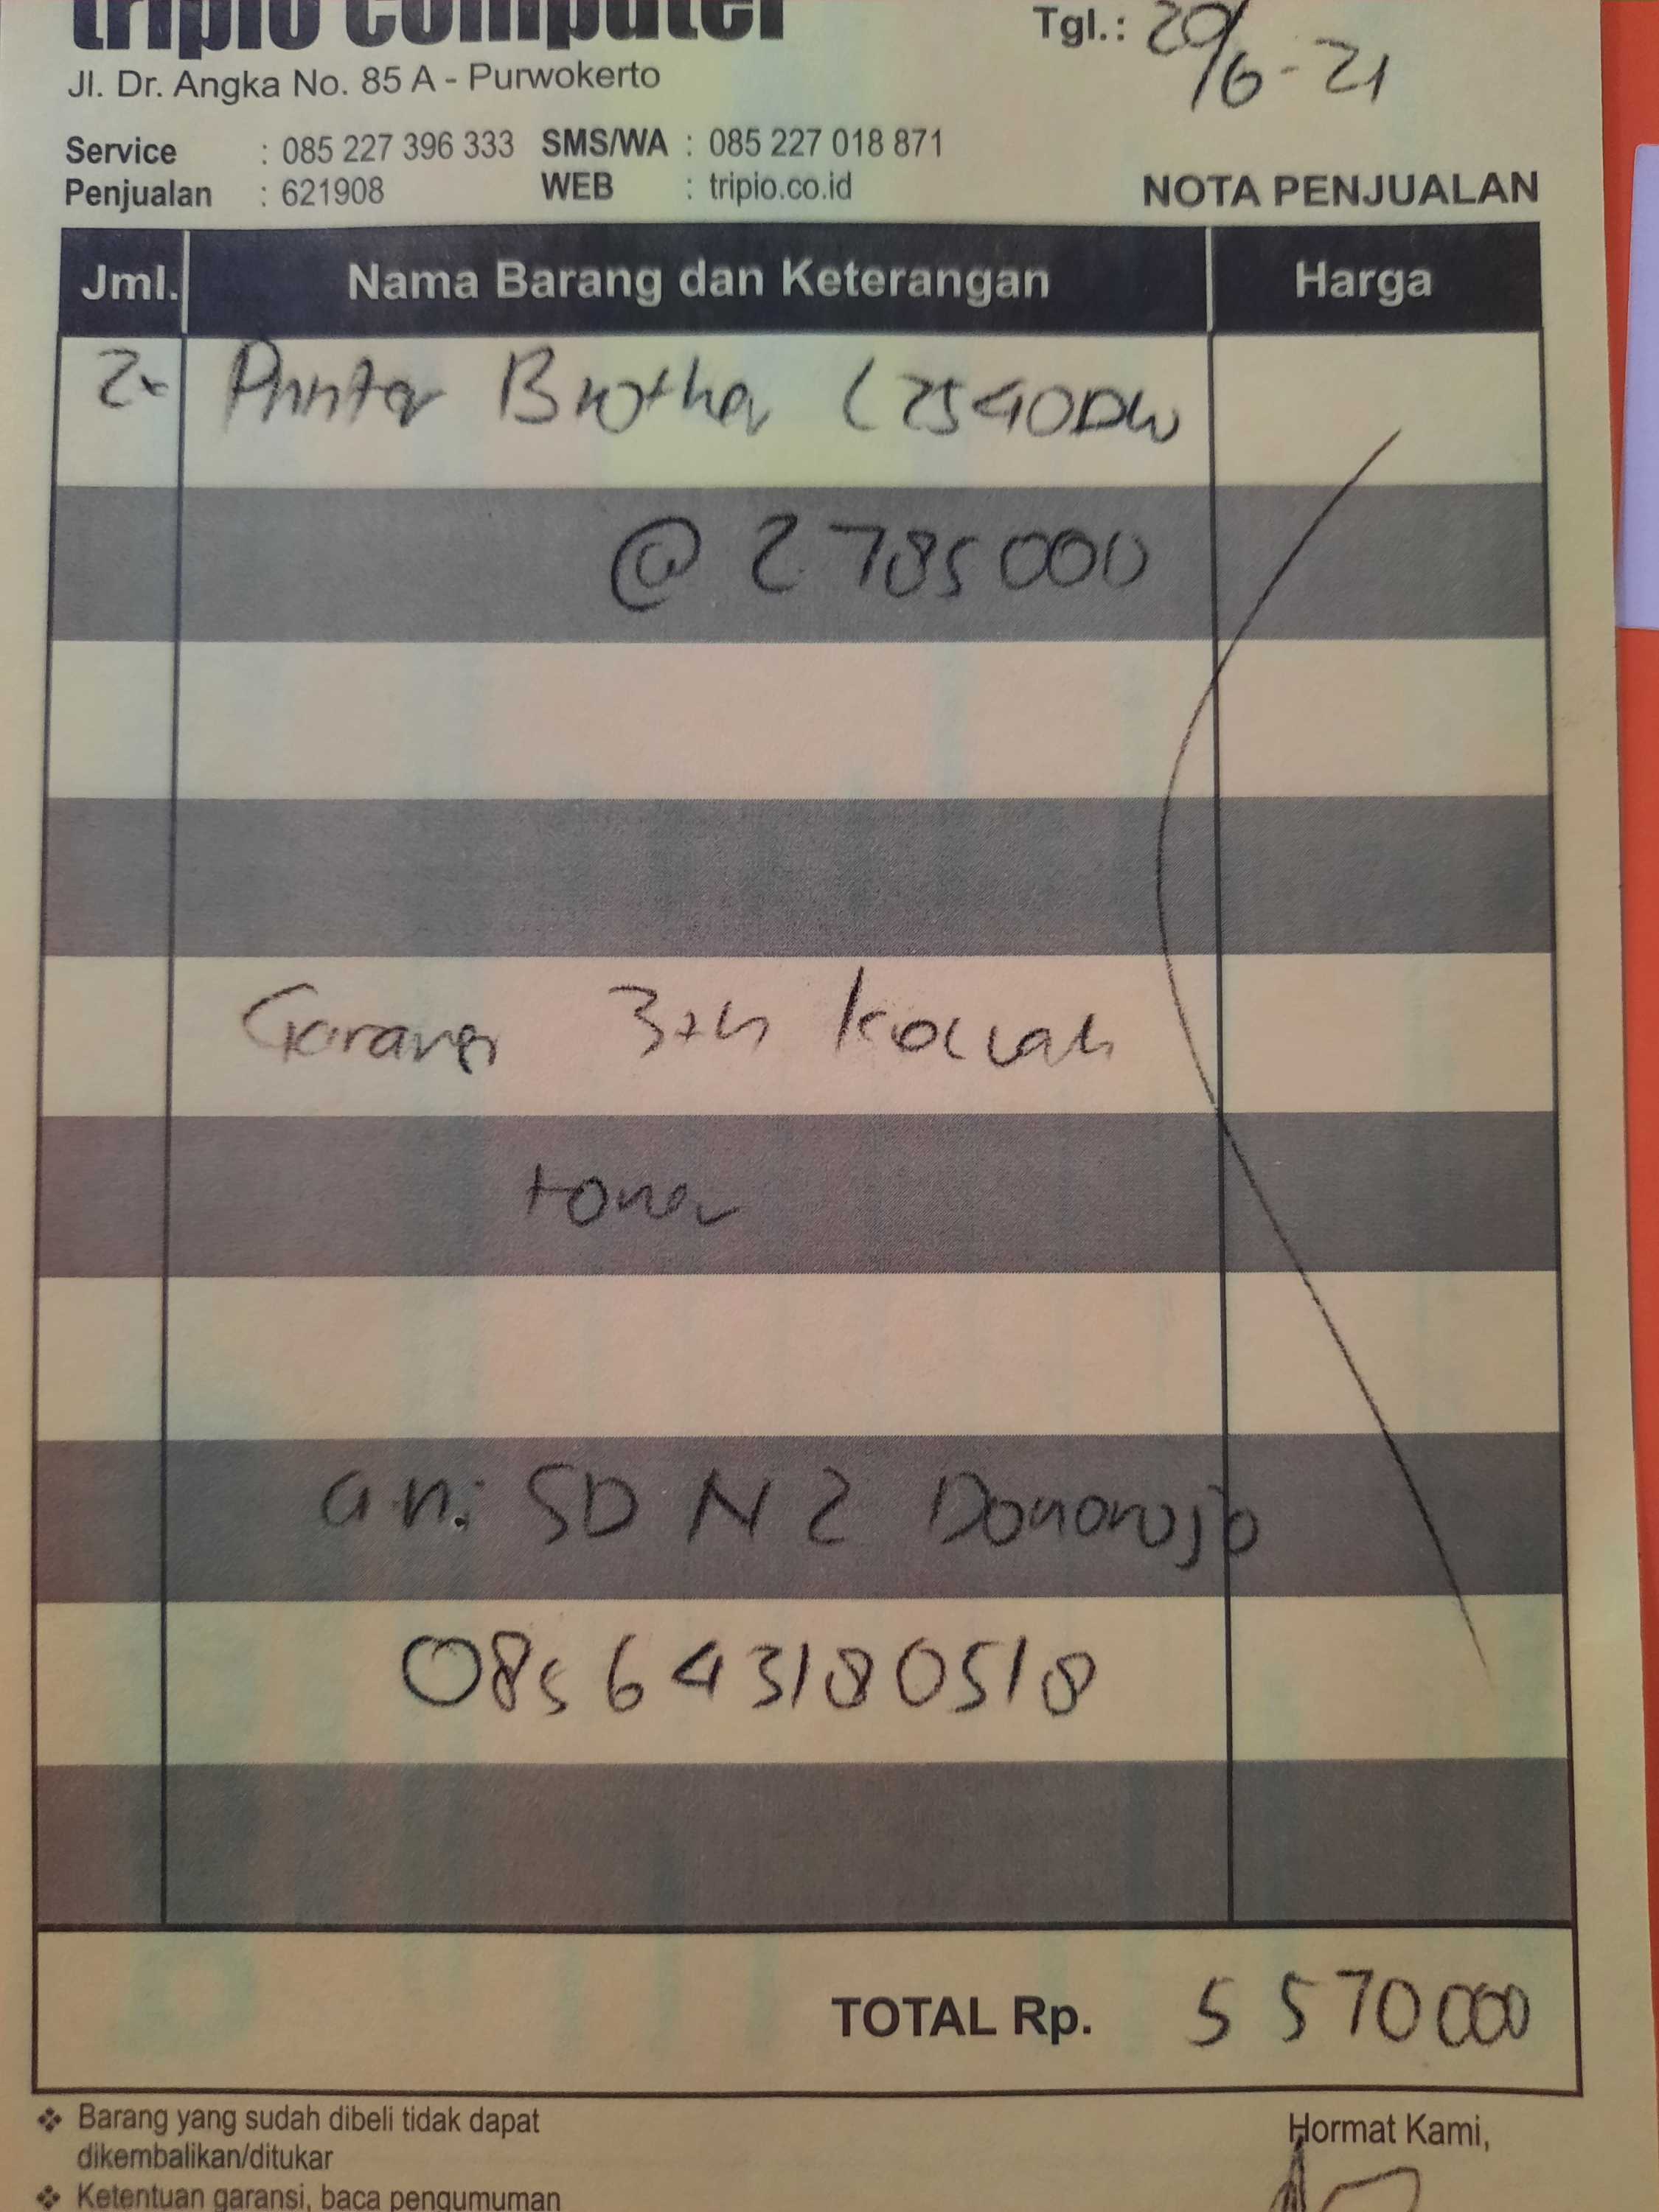 tripio computer
Tgl.: 20/6-21
Jl. Dr. Angka No. 85 A - Purwokerto
Service : 085 227 396 333 SMS/WA : 085 227 018 871
Penjualan : 621908 WEB : tripio.co.id
NOTA PENJUALAN
Jml. Nama Barang dan Keterangan Harga
2x Printer Brother L2540DW
@ 2.785000
Garansi 3th kecuali
toner
a.n: SD N 2 Donorojo
085643180518
TOTAL Rp. 5 570000
❖ Barang yang sudah dibeli tidak dapat
dikembalikan/ditukar
Hormat Kami,
❖ Ketentuan garansi, baca pengumuman